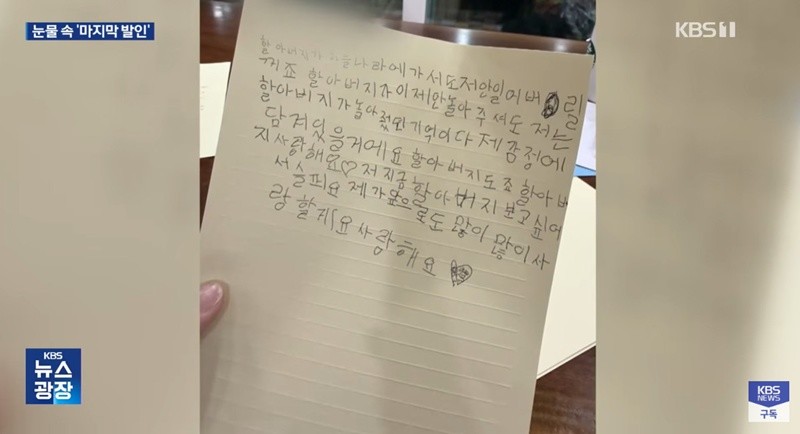 눈물 속 '마지막 발인'
KBS 1
할아버지가 하늘나라에가서도저안잊어버릴
꺼죠 할아버지가이제안놀아주셔도 저는
할아버지가놀아줬던기억이다제감정에
담겨있을거에요할아버지도죠할아버
지사랑해요♡저지금할아버지보고싶어
서슬퍼요제가앞으로도많이많이사
랑할게요사랑해요
KBS
뉴스
광장
KBS
NEWS
구독